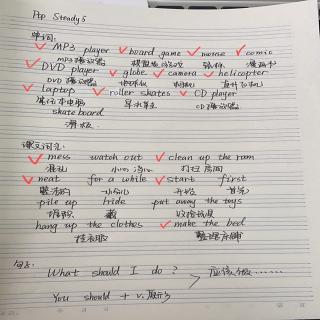 Pop Steady 5
单词:
MP3 player board game mouse comic
MP3播放器 棋盘游戏 鼠标 漫画书
DVD player globe camera helicopter
DVD播放器 地球仪 直升飞机
laptop roller skates CD player
笔记本电脑 旱冰鞋 CD播放器
skate board
滑板
课文词汇:
mess watch out clean up the room
混乱 小心 打扫房间
neat for a while start first
整洁的 一小会儿 开始 首先
pile up hide put away the toys
堆积 藏 收拾玩具
hang up the clothes make the bed
挂衣服 整理床铺
句子:
What should I do? 应该做……
You should + v.原形